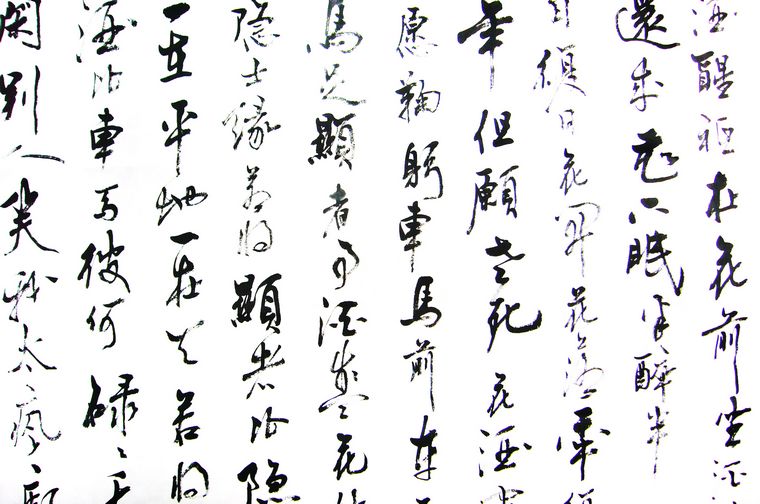 酒醒祗在花前坐酒
還来花下眠半醉半
日復日花開花落年復
年但願老死花酒
愿鞠躬車馬前車
馬足顯者事酒盞花枝
隱士緣若將顯者比隱
一在平地一在天若將
酒比車馬彼何碌々
別人笑我太瘋